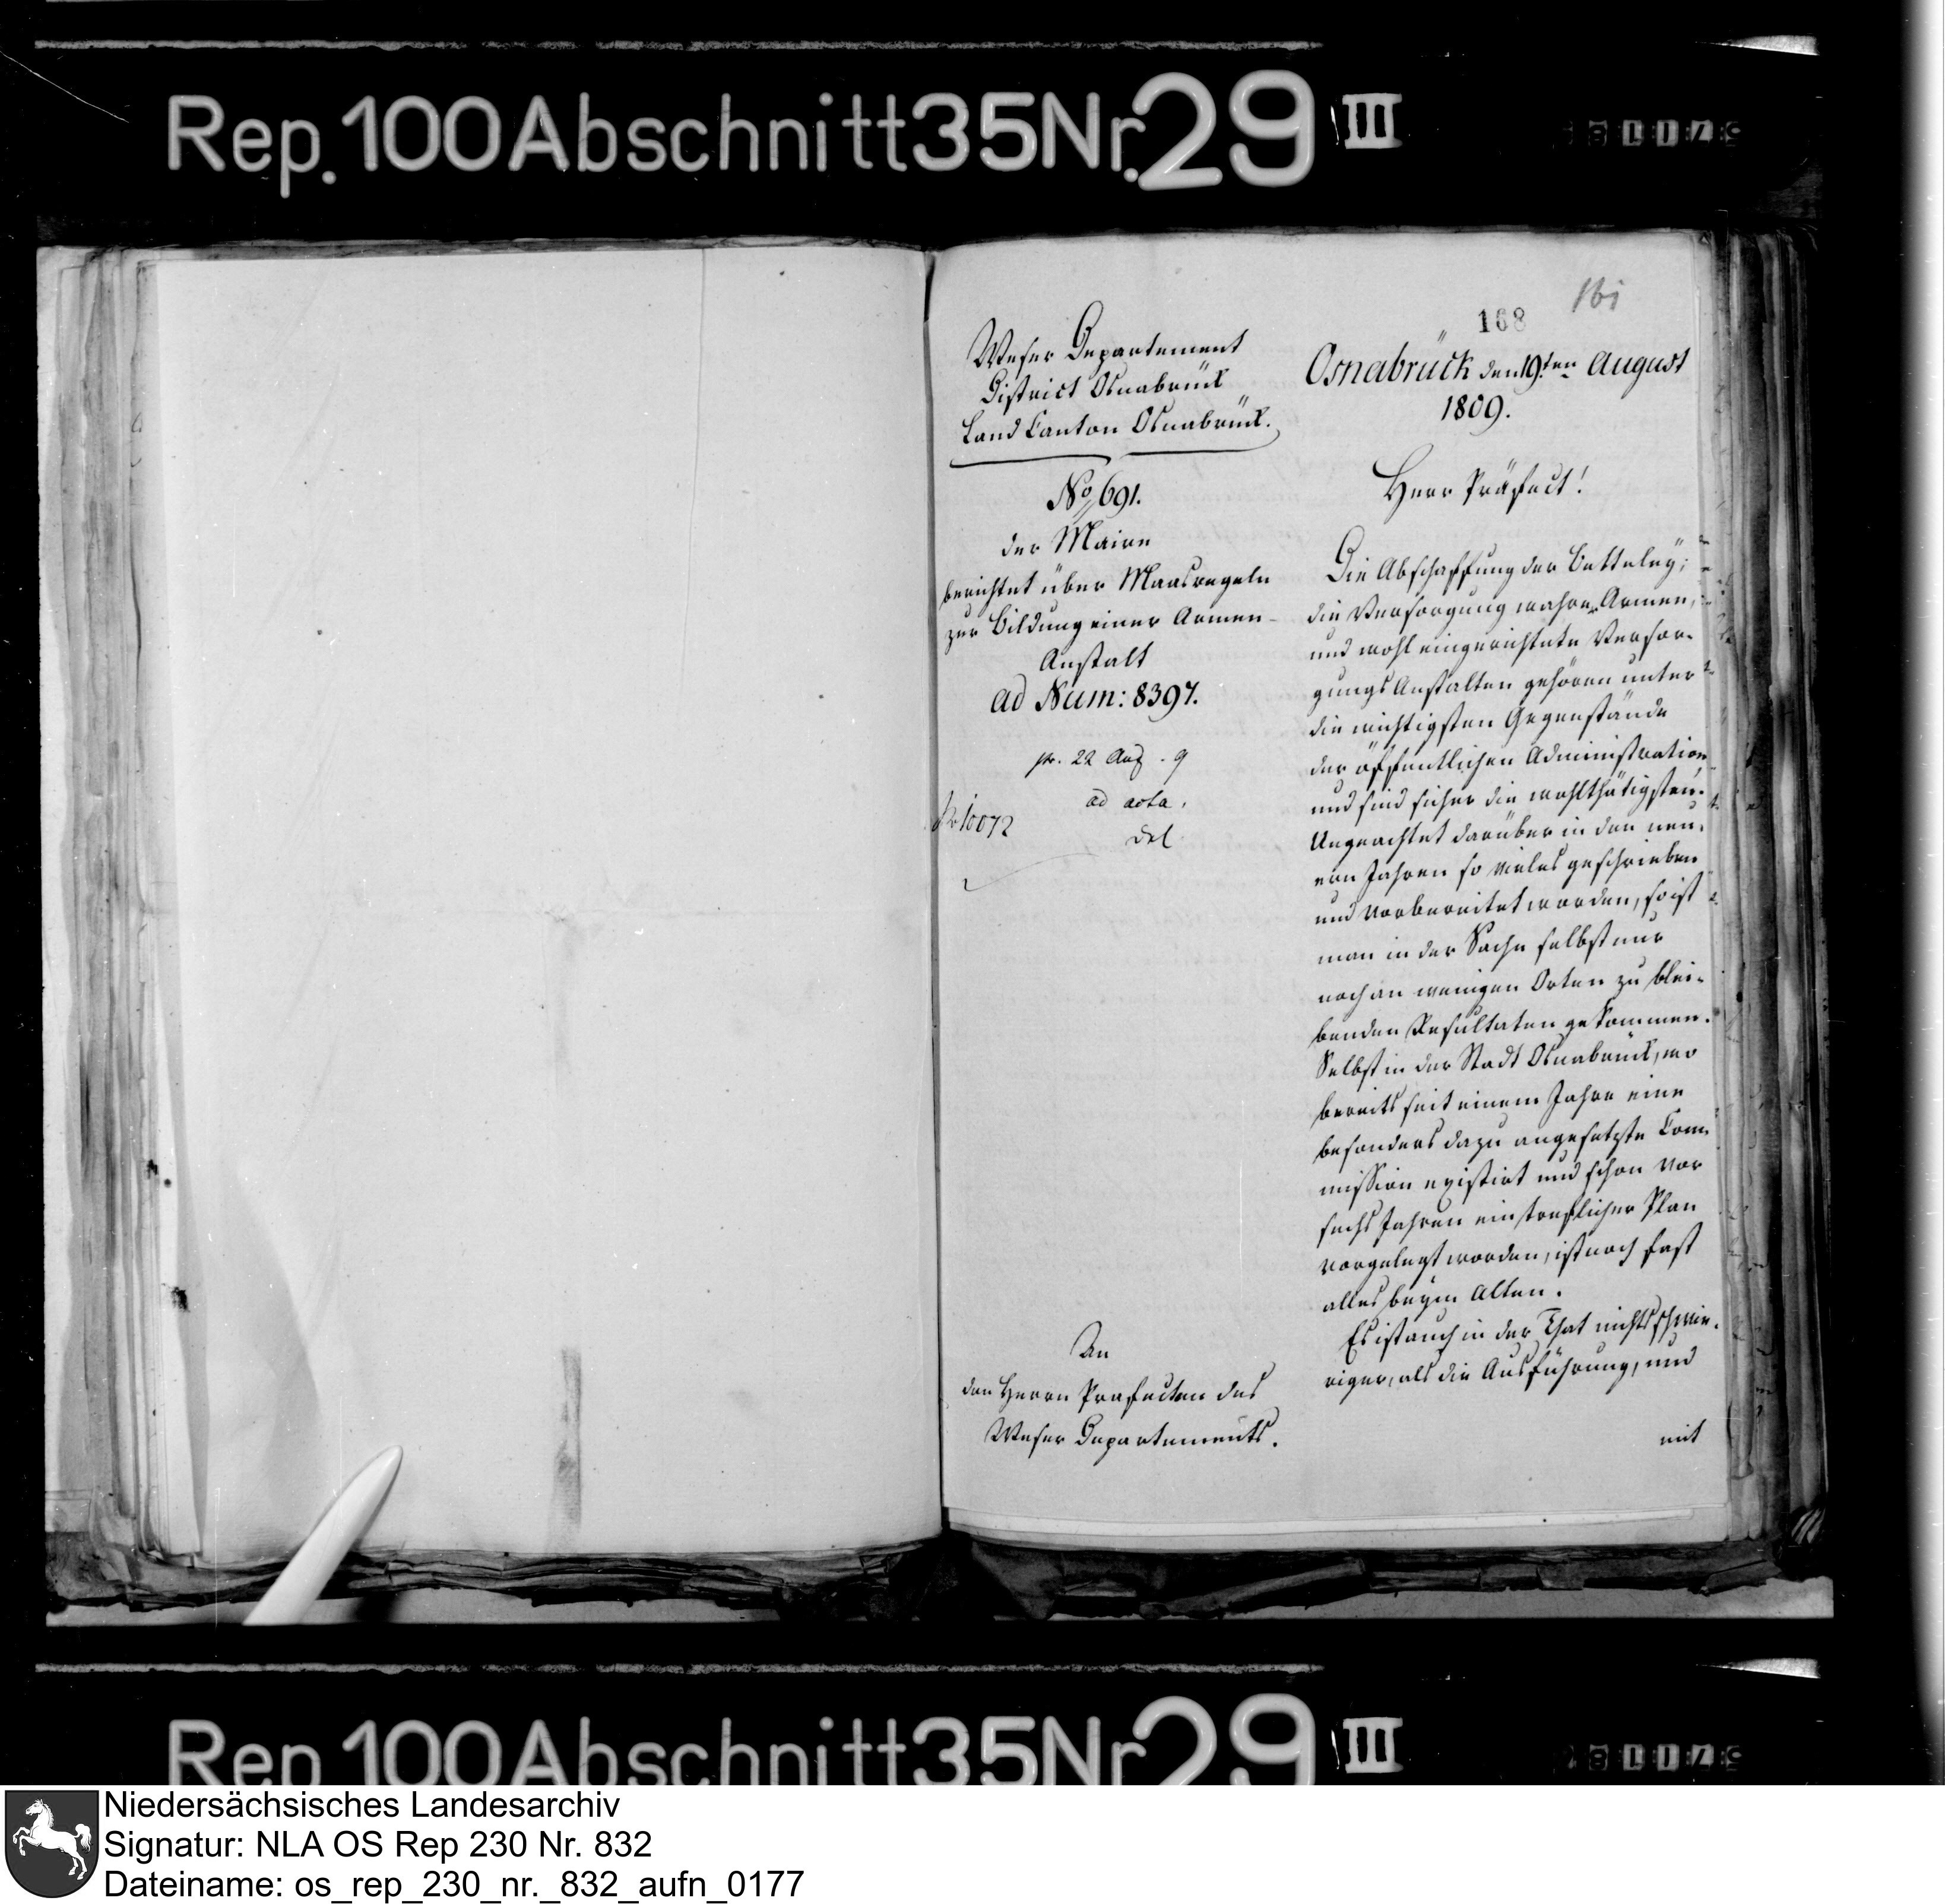 Rep. 100 Abschnitt 35 Nr. 29 III
161
168
Weser Departement
District Osnabrück
Land Canton Osnabrück.
No 691.
der Maire
berichtet über Maasregeln
zur Bildung einer Armen-
Anstalt
ad Num: 8397.
pr. 22 Aug. 9
ad acta.
10072
An
den Herrn Präfecten des
Weser Departements.
Osnabrück den 19ten August
1809.
Herr Präfect!
Die Abschaffung der Betteley;
die Versorgung wahrer Armen,
und wohl eingerichtete Versor-
gungs Anstalten gehören unter
die wichtigsten Gegenstände
der öffentlichen Administration
und sind sicher die wohlthätigsten.
Ungeachtet darüber in den neu-
ern Jahren so vieles geschrieben
und vorbereitet worden, so ist
man in der Sache selbst nur
noch an wenigen Orten zu blei-
benden Resultaten gekommen.
Selbst in der Stadt Osnabrück, wo
bereits seit einem Jahre eine
besonders dazu angesetzte Com-
mission existirt und schon vor
sechs Jahren ein treflicher Plan
vorgelegt worden, ist noch fast
alles beym Alten.
Es ist auch in der That nichts schwie-
riger, als die Ausführung, und
mit
Rep. 100 Abschnitt 35 Nr. 29 III
Niedersächsisches Landesarchiv
Signatur: NLA OS Rep 230 Nr. 832
Dateiname: os_rep_230_nr._832_aufn_0177